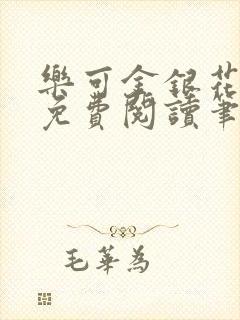 樂可金銀花
免費閱讀筆
毛華為